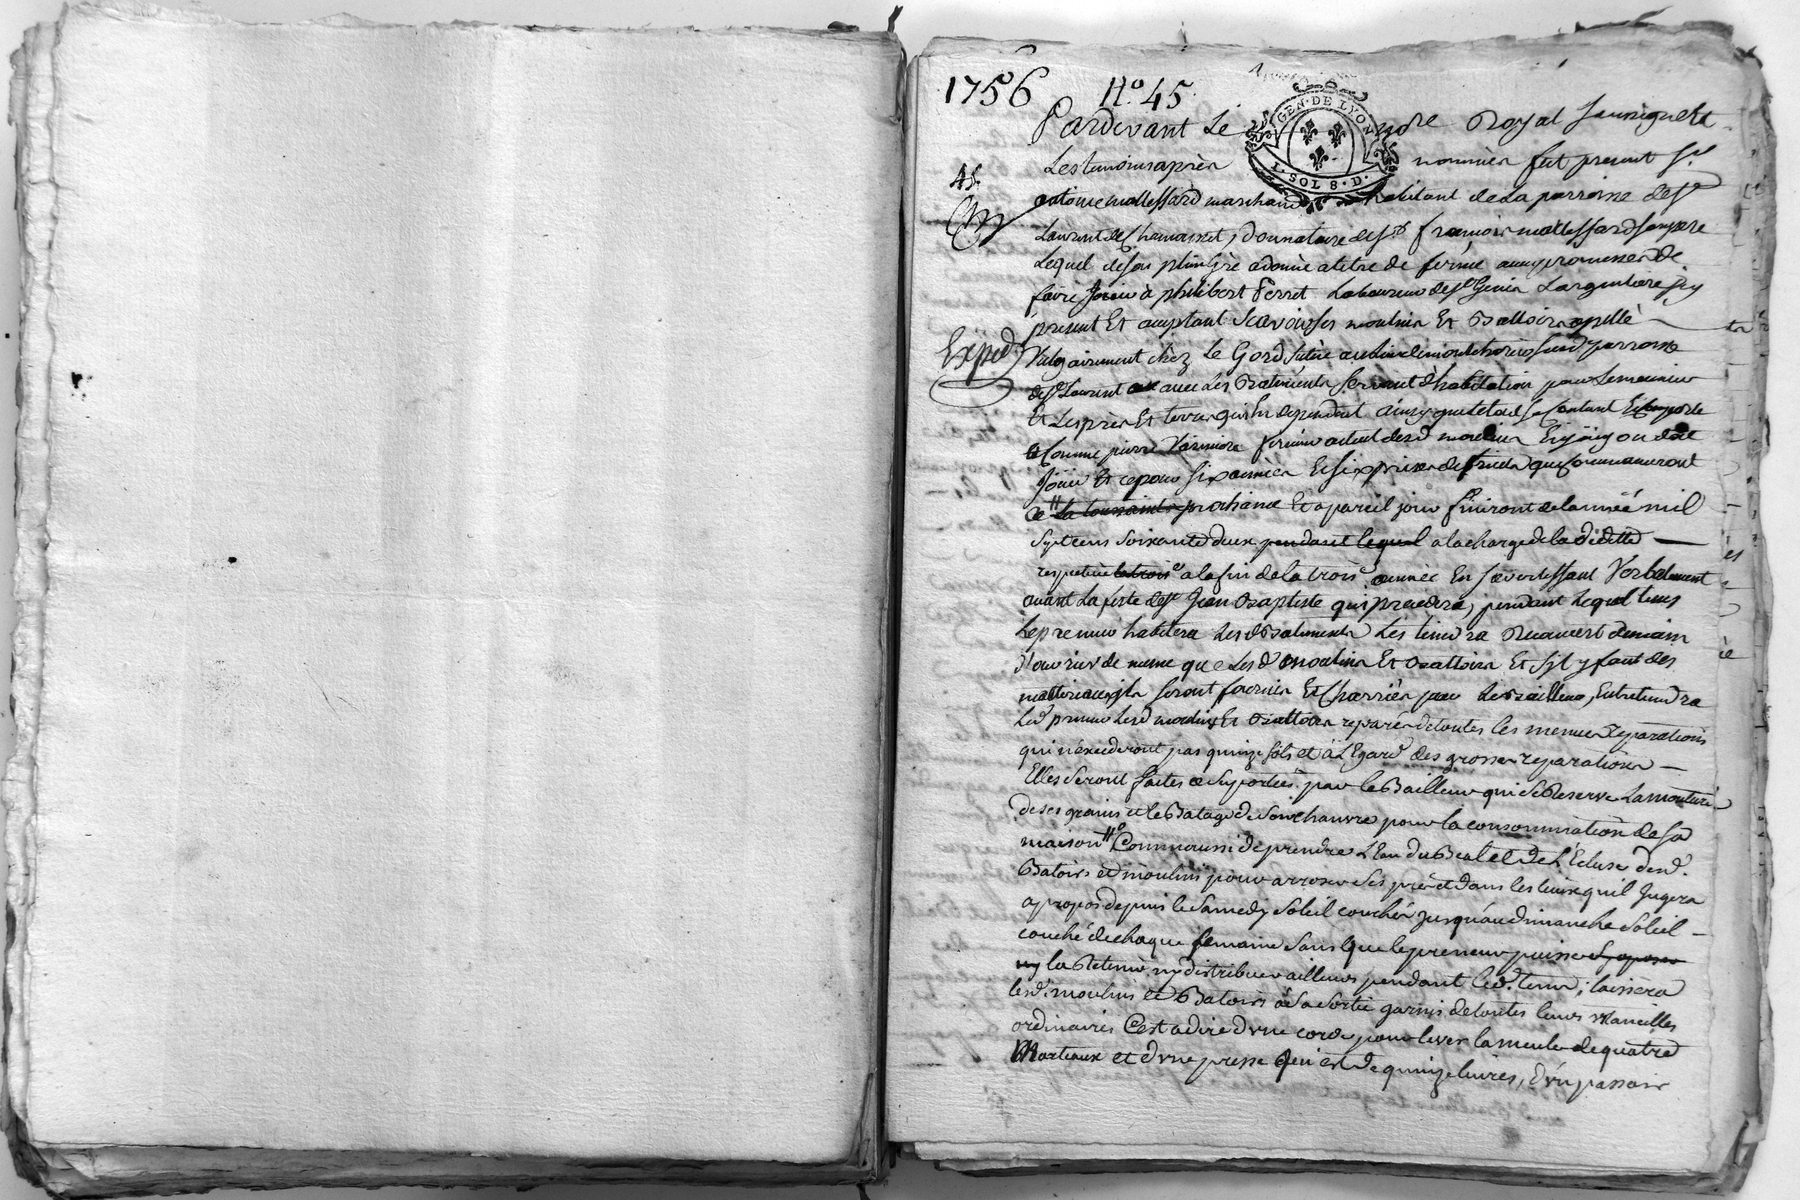 1756 N.o 45
GEN. DE LYON
1. SOL 8. D.
Pardevant Le Royal Soussigné Et
Les temoins après nommés fut present Sr
45.
antoine mattessard marchand habitant de La parroisse de St
Laurent de Chamousset, donnataire de Sr françois mattessard son pere
Lequel de son plein gré a donné a titre de ferme avec promesse de
faire Jouir à philibert Ferret Laboureur de St Genis Largentiere Icy
present Et aceptant Scavoir Ses moulins Et Battoirs apellé
Exped
Vulgairement chéz Le Gord Situé parroisse
de St Laurent avec Les Batiments Servant d'habitation pour Le meunier
Et Les prés Et terres qui En dependent ainsy que le tout Se Contient Et Comporte
Comme pierre fermier actuel desd moulins En Jouy ou doit
Jouir Et ce pour Six années Et Six prises de fruits qui Commanceront
a la toussaints prochaine Et a pareil jour finiront de lannée mil
Sept cens Soixante deux pendant lequel a la charge de la déditte
respective a la fin de la trois.e année En S'avertissant Verbalement
avant La feste de St Jean Baptiste qui precedera, pendant Lequel tems
Le preneur habitera Lesd Batiments Les tiendra Recouvert de main
d'ouvrier de meme que Lesd moulins Et Battoirs Et S'il y faut des
matteriaux ils Seront fournis Et Charriés par Le Bailleur, Entretiendra
Led preneur Lesd moulins Et Battoirs reparés de toutes Les menues Reparations
qui n'éxcederont pas quinze Sols et à L'Egard des grosses reparations
Elles Seront faites et Suportées par le Bailleur qui Se Reserve La mouture
de ses grains et le Batage de Son chanvre pour la consommation de Sa
maison Comm'aussi de prendre L'Eau du Beal et de L'Ecluse desd.
Batoirs et moulins pour arroser Ses prés et dans les lieux qu'il Jugera
a propos depuis le Samedy Soleil couché jusqu'au dimanche Soleil
couché de chaque Semaine Sans que le preneur puisse S'y oposer
ny la Retenir ny distribuer ailleurs pendant led. tems; laissera
lesd. moulins et Batoirs à Sa Sortie garnis de toutes leurs
ordinaires C'est a dire d'une corde pour lever la meule de quatre
Marteaux et d'une presse qui est de quinze livres, d'un passoir